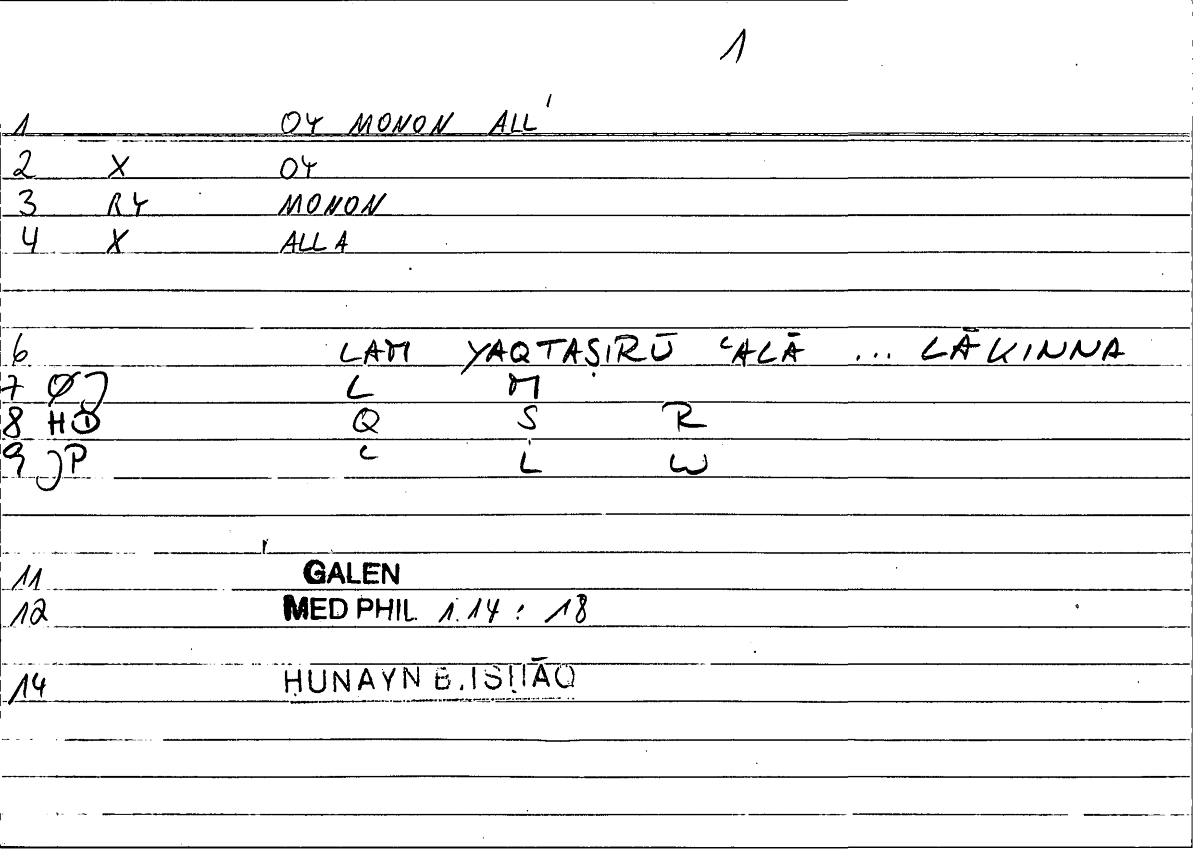 1
1 OY MONON ALL'
2 X OY
3 RY MONON
4 X ALLA
6 LAM YAQTAṢIRŪ ʿALĀ ... LĀKINNA
7 L M
8 Q Ṣ R
9 ʿ L W
11 GALEN
12 MED PHIL 1.14 : 18
14 ḤUNAYN B. ISḤĀQ